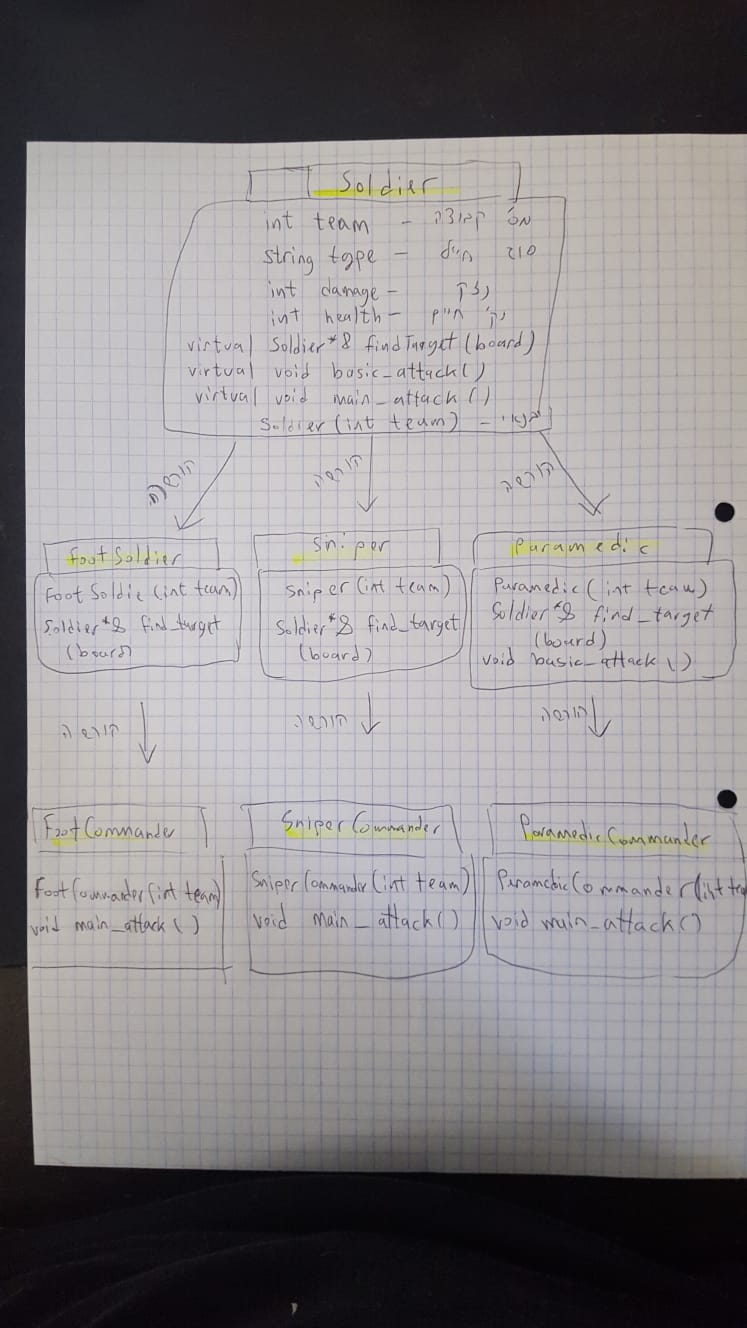 Soldier
int team - מס' קבוצה
string type - סוג חייל
int damage - נזק
int health - נק' חיים
virtual Soldier*& findTarget (board)
virtual void basic_attack()
virtual void main_attack ()
Soldier (int team) -
הורשה הורשה הורשה
FootSoldier
Foot Soldie (int team)
Soldier*& find_target
(board)
Sniper
Sniper (int team)
Soldier*& find_target
(board)
Paramedic
Paramedic (int team)
Soldier*& find_target
(board)
void basic_attack ()
הורשה הורשה הורשה
FootCommander
Foot Commander (int team)
void main_attack ()
Sniper Commander
Sniper Commander (int team)
void main_attack ()
Paramedic Commander
Commander (int
void main_attack ()